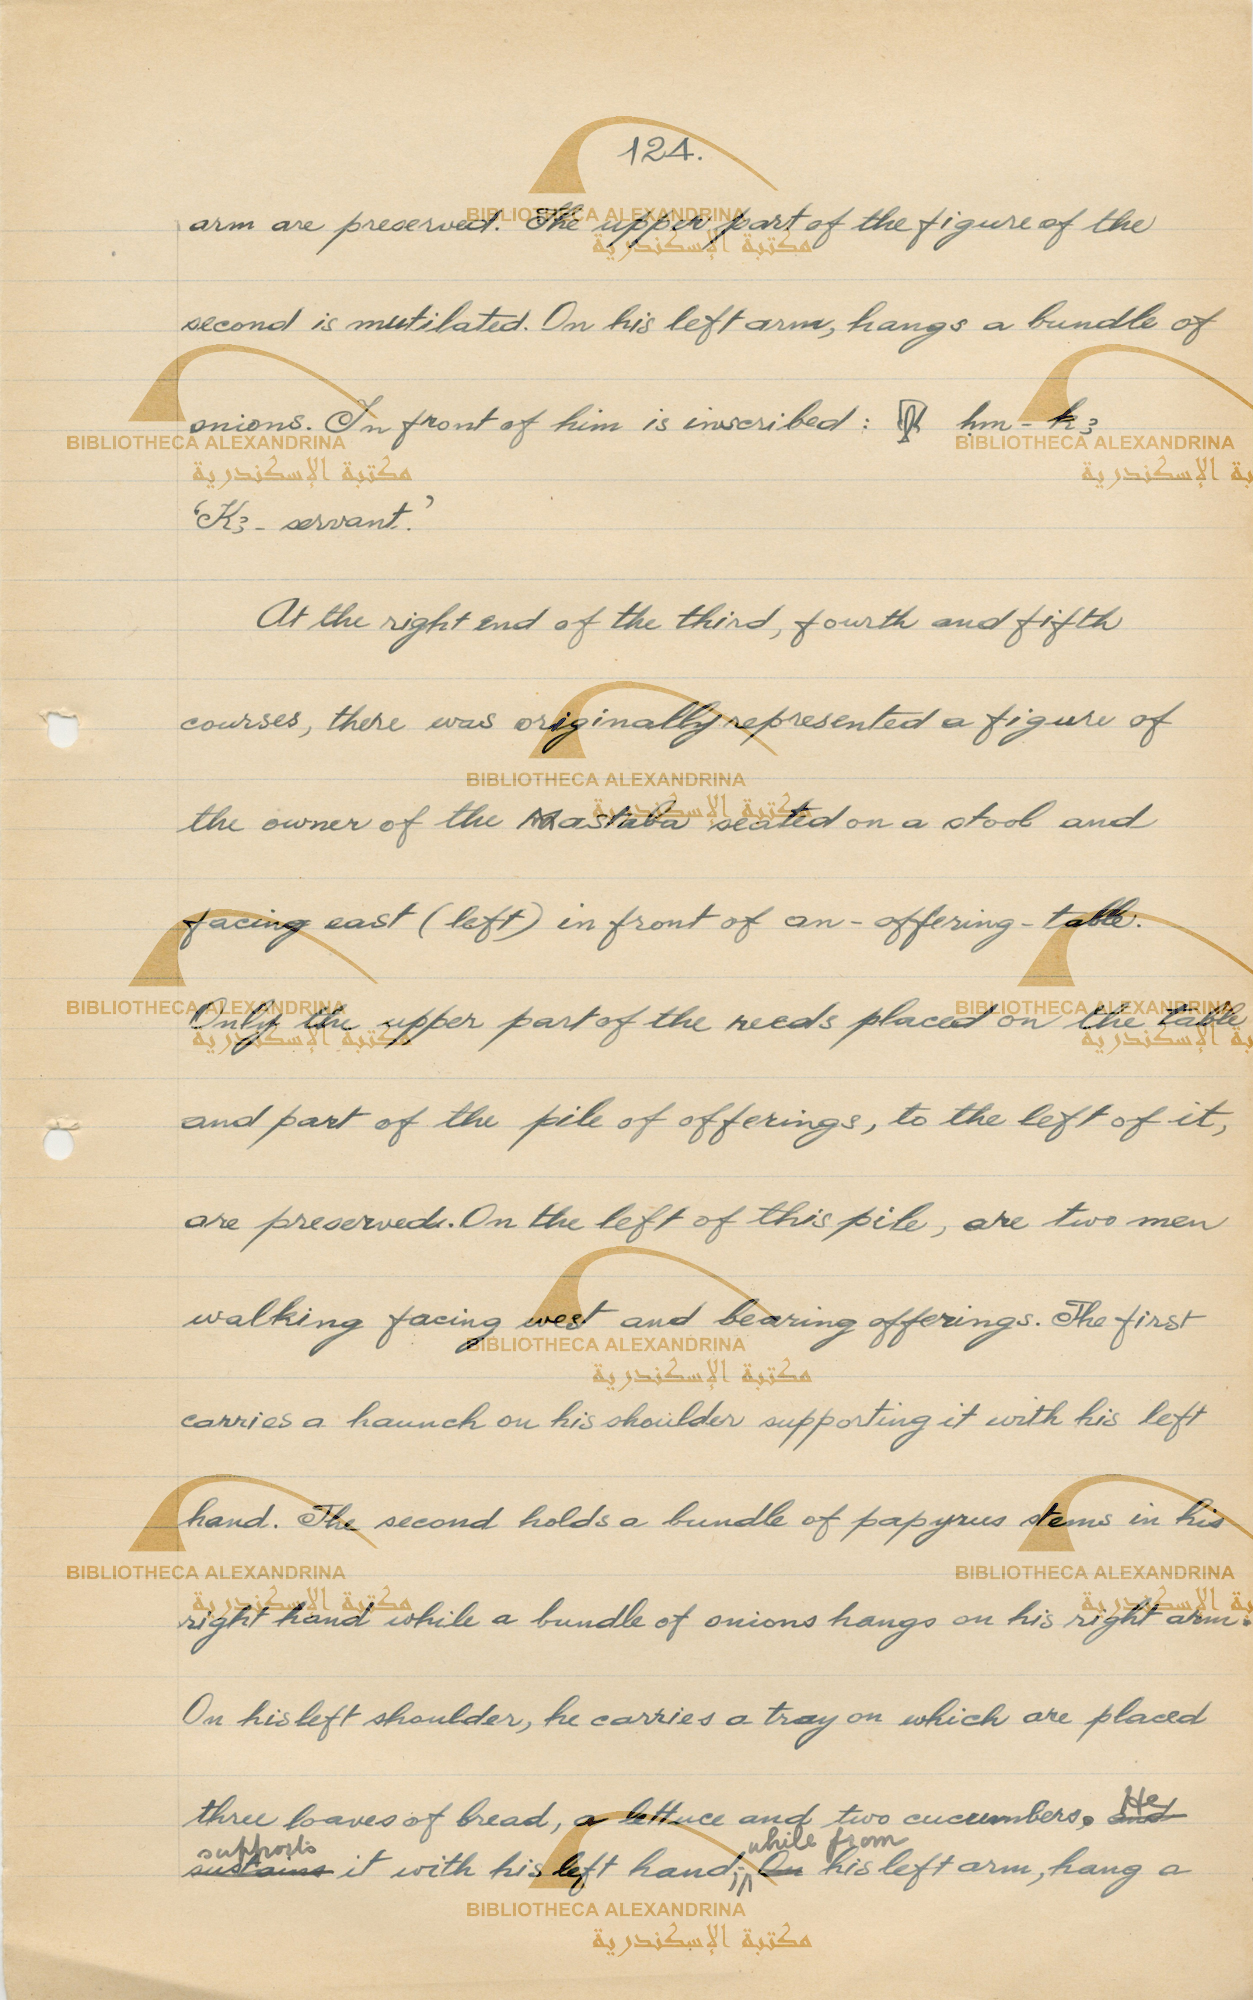 124.
arm are preserved. The upper part of the figure of the
second is mutilated. On his left arm, hangs a bundle of
onions. In front of him is inscribed : ḥm - kꜣ
‘Kꜣ - servant.’
At the right end of the third, fourth and fifth
courses, there was originally represented a figure of
the owner of the Mastaba seated on a stool and
facing east (left) in front of an - offering - table.
Only the upper part of the reeds placed on the table
and part of the pile of offerings, to the left of it,
are preserved. On the left of this pile, are two men
walking facing west and bearing offerings. The first
carries a haunch on his shoulder supporting it with his left
hand. The second holds a bundle of papyrus stems in his
right hand while a bundle of onions hangs on his right arm.
On his left shoulder, he carries a tray on which are placed
He
three loaves of bread, a lettuce and two cucumbers. and
supports while from
sustains it with his left hand; On his left arm, hang a
BIBLIOTHECA ALEXANDRINA
مكتبة الإسكندرية